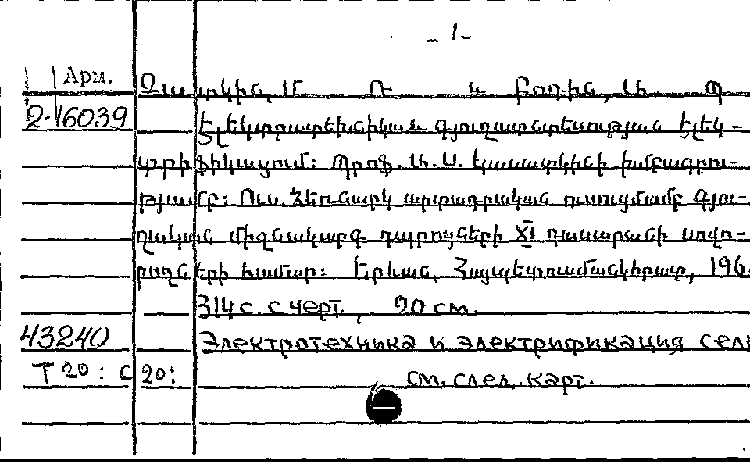 - 1-
Арм.
2-16039
Էլեկտրատեխնիկան գյուղատնտեսության էլեկ-
տրիֆիկացում: Պրոֆ. Ա. Ս. Կասատկինի խմբագրու-
թյամբ: Ուս. ձեռնարկ արտադրական ուսուցմամբ գյու-
ղական միջնակարգ դպրոցների XI դասարանի սովո-
րողների համար: Երևան, Հայպետուսմանկհրատ, 196
314 с. с черт., 20 см.
43240
Электротехника и электрификация сел
Т 20 : С 20:
см. след. карт.